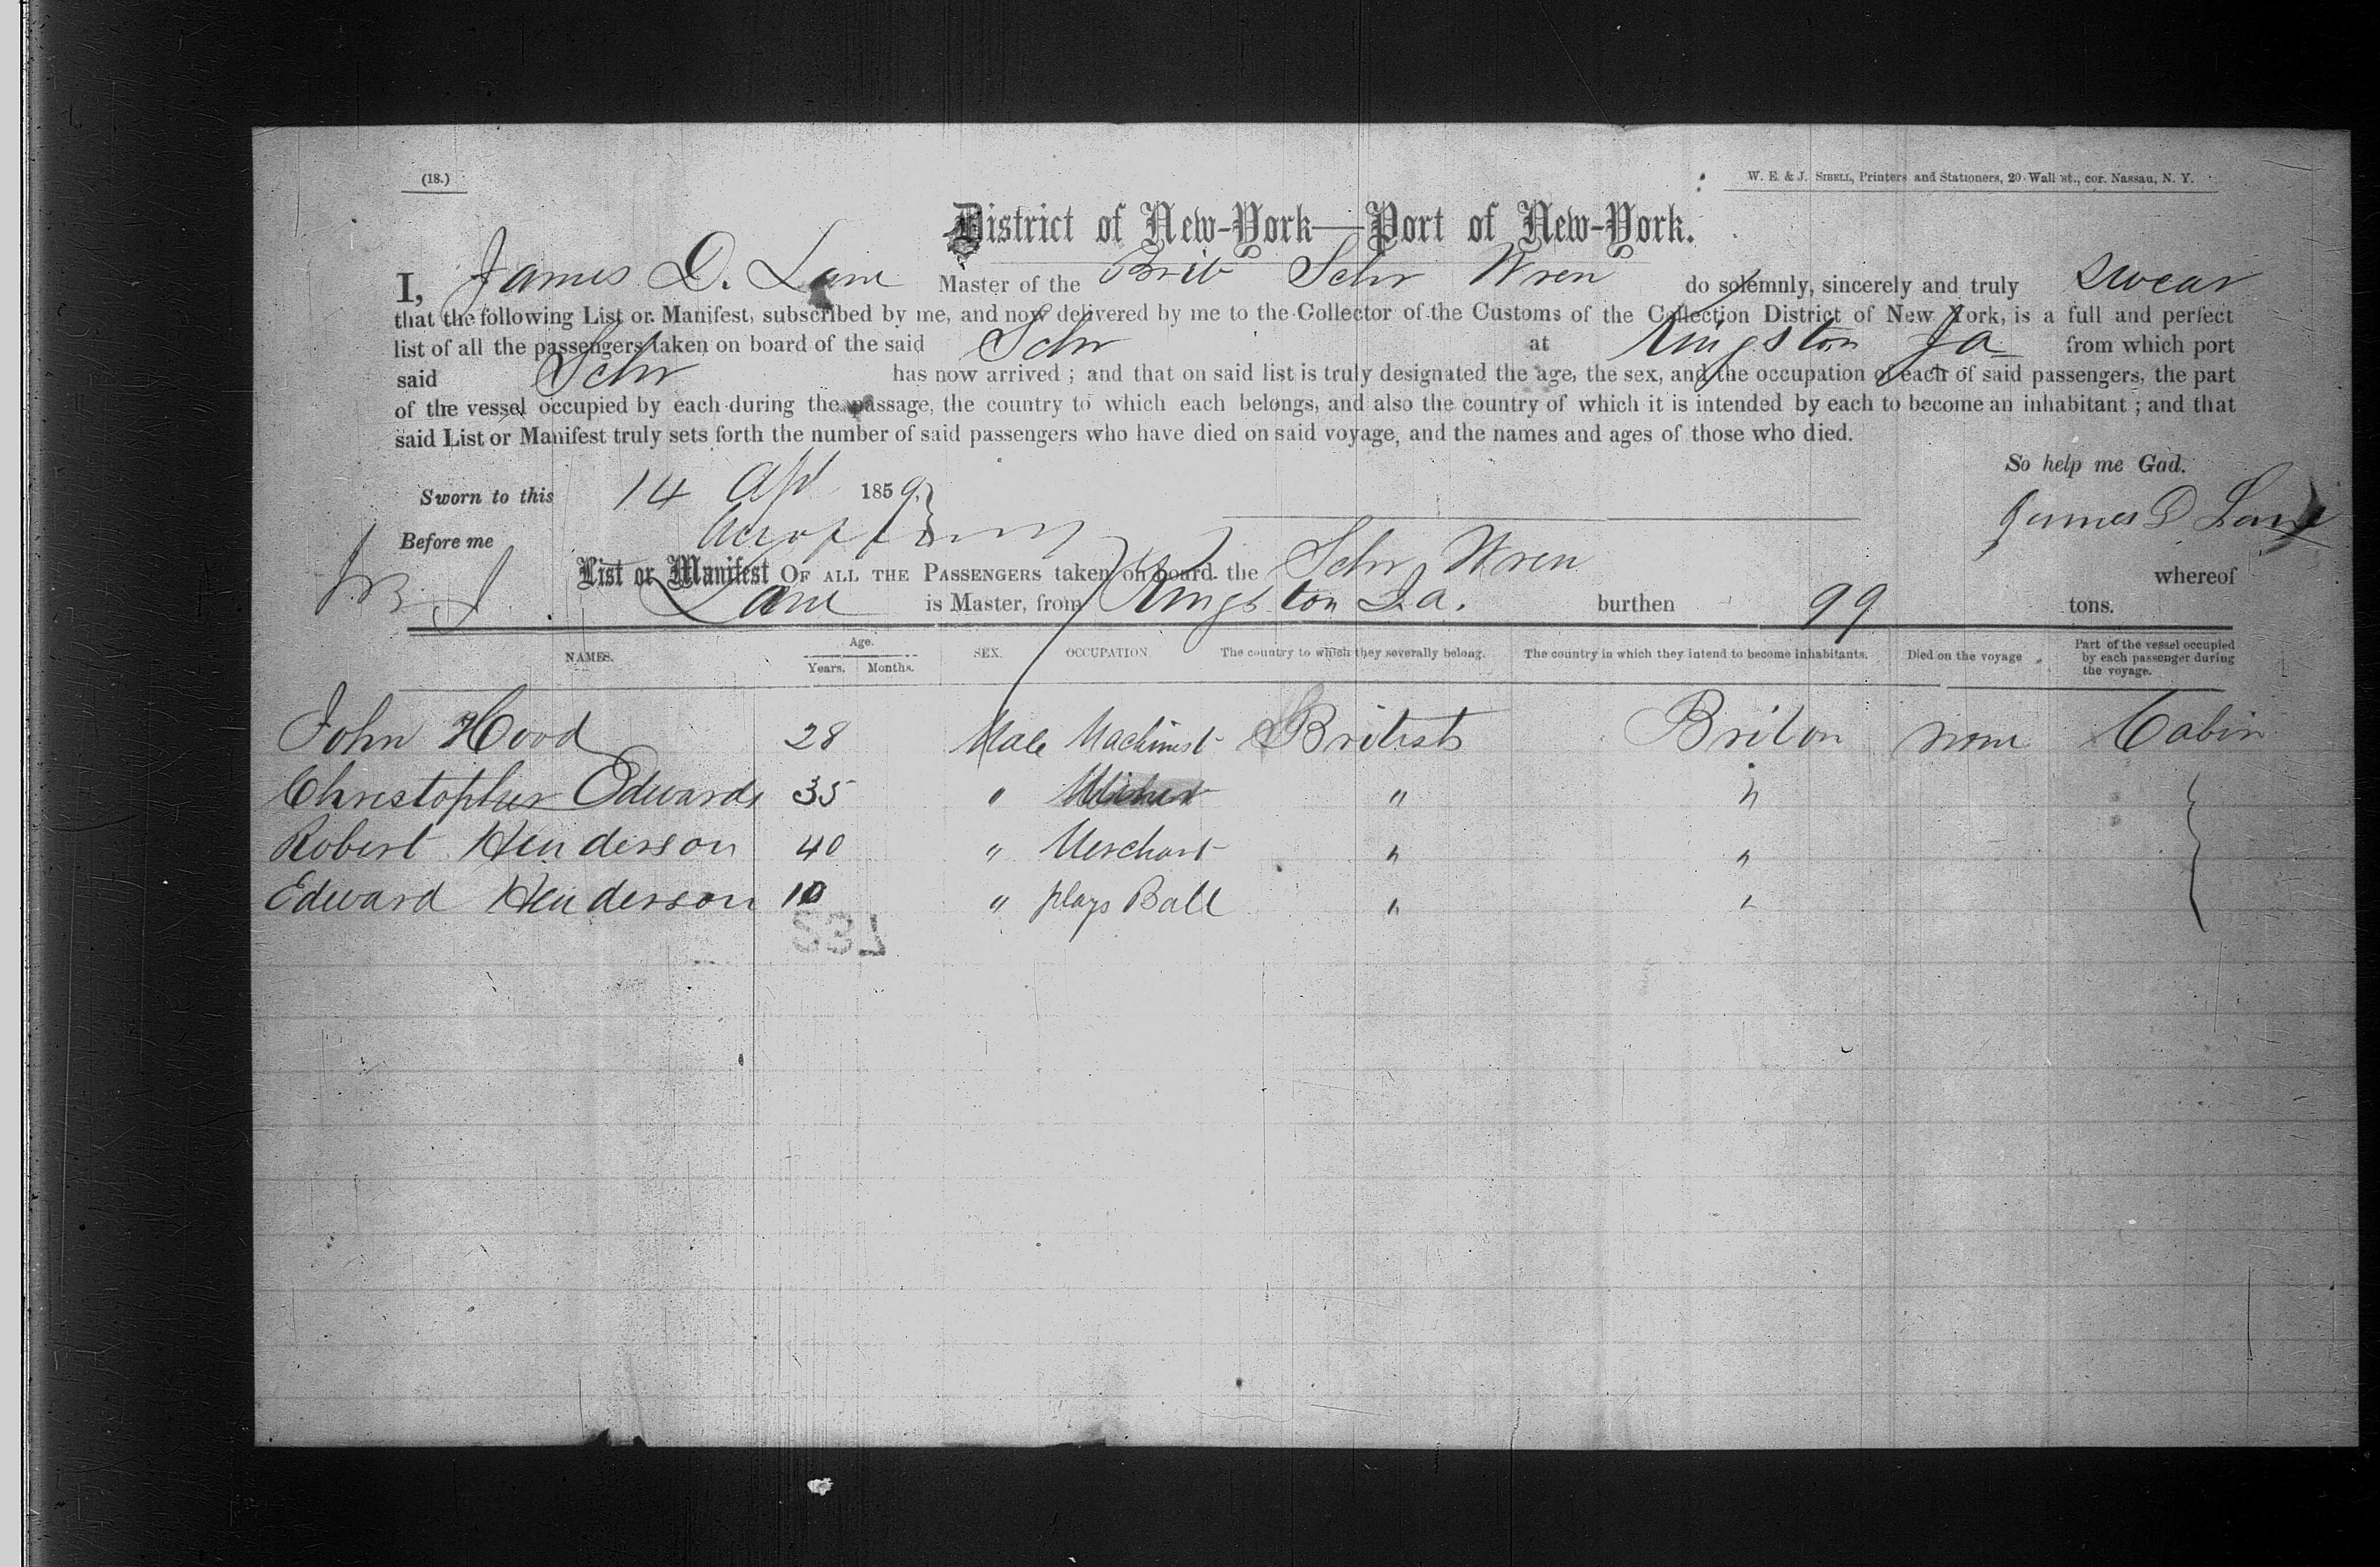 (18.)
W. E. & J. SIBELL, Printers and Stationers, 20 Wall st., cor. Nassau, N. Y.
District of New-York—Port of New-York.
I, James D. Lane Master of the Brit Schr Wren do solemnly, sincerely and truly swear
that the following List or Manifest, subscribed by me, and now delivered by me to the Collector of the Customs of the Collection District of New York, is a full and perfect
list of all the passengers taken on board of the said Schr at Kingston Ja from which port
said Schr has now arrived ; and that on said list is truly designated the age, the sex, and the occupation of each of said passengers, the part
of the vessel occupied by each during the passage, the country to which each belongs, and also the country of which it is intended by each to become an inhabitant ; and that
said List or Manifest truly sets forth the number of said passengers who have died on said voyage, and the names and ages of those who died.
So help me God.
Sworn to this 14 Apl 1859.
James D Lane
Before me
List or Manifest OF ALL THE PASSENGERS taken on board the Schr Wren whereof
Lane is Master, from Kingston Ja. burthen 99 tons.
NAMES. Age. Years. Months. SEX. OCCUPATION. The country to which they severally belong. The country in which they intend to become inhabitants. Died on the voyage Part of the vessel occupied by each passenger during the voyage.
John Hood 28 Male Machinist British Briton none Cabin
Christopher Edwards 35 " " "
Robert Henderson 40 " Merchant " "
Edward Henderson 10 " plays Ball " "
237